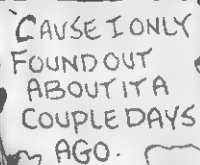 'CAUSE I ONLY
FOUND OUT
ABOUT IT A
COUPLE DAYS
AGO.